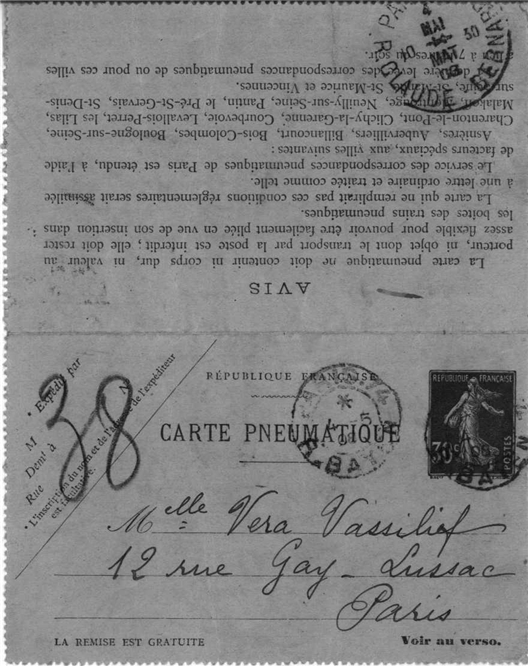 AVIS
La carte pneumatique ne doit contenir ni corps dur, ni valeur au
porteur, ni objet dont le transport par la poste est interdit; elle doit rester
assez flexible pour pouvoir être facilement pliée en vue de son insertion dans
les boîtes des trains pneumatiques.
La carte qui ne remplirait pas ces conditions réglementaires serait assimilée
à une lettre ordinaire et traitée comme telle.
Le service des correspondances pneumatiques de Paris est étendu, à l'aide
de facteurs spéciaux, aux villes suivantes :
Asnières, Aubervilliers, Billancourt, Bois-Colombes, Boulogne-sur-Seine,
Charenton-le-Pont, Clichy-la-Garenne, Courbevoie, Levallois-Perret, les Lilas,
Malakoff, Montrouge, Neuilly-sur-Seine, Pantin, le Pré-St-Gervais, St-Denis-
sur-Seine, St-Mandé, St-Maurice et Vincennes.
dernière levée des correspondances pneumatiques de ou pour ces villes
a lieu à 7 heures du soir.
PARIS
R. CLAUDE BERNARD
10 4 30
MAI
MAI
06
Expédié par
M
Demt à
Rue
N
L'inscription du nom et de l'adresse de l'expéditeur
est facultative.
38
RÉPUBLIQUE FRANÇAISE
CARTE PNEUMATIQUE
RÉPUBLIQUE FRANÇAISE
30c
POSTES
Melle Vera Vassilief
12 rue Gay-Lussac
Paris
LA REMISE EST GRATUITE
Voir au verso.